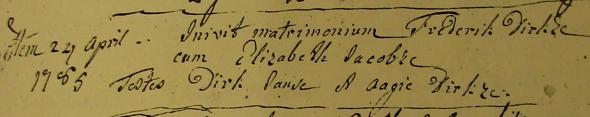 Item 24 April .. Inivit matrimonium Frederik Dirkze
cum Elizabeth Jacobze
1765 Testes Dirk Panse & Aagie Dirkze.